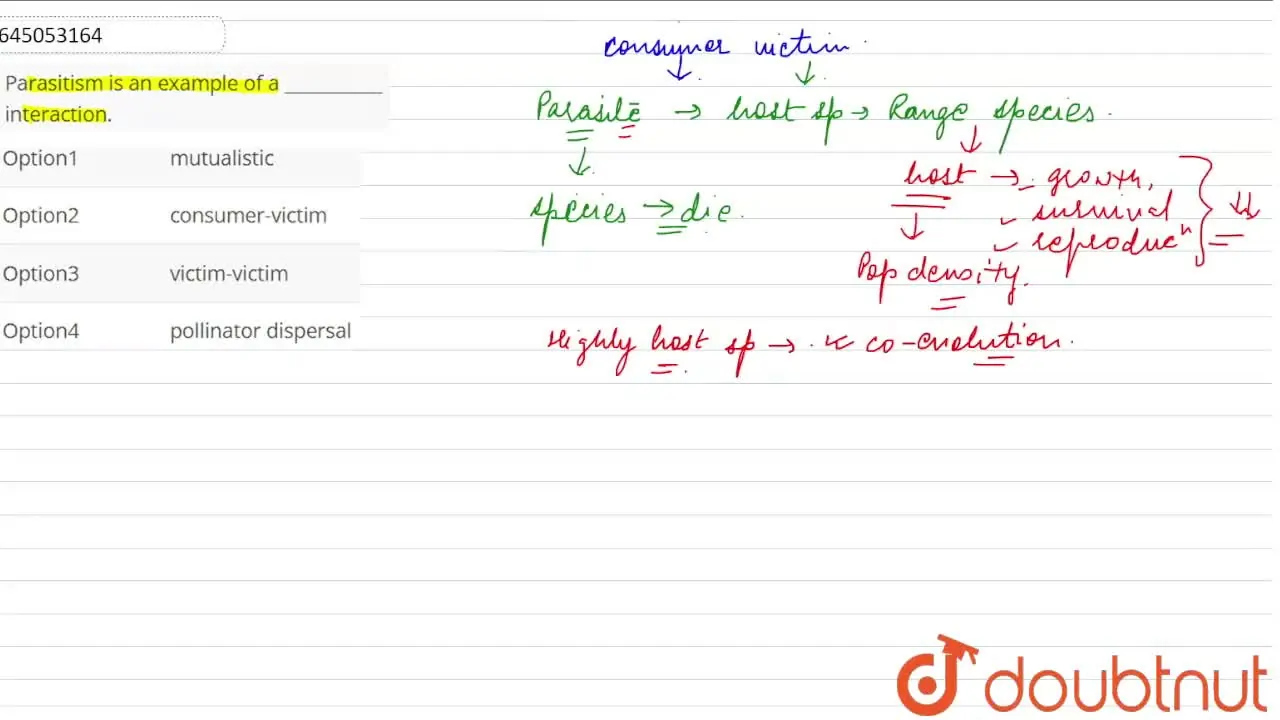 645053164
Parasitism is an example of a ___________
interaction.
Option1 mutualistic
Option2 consumer-victim
Option3 victim-victim
Option4 pollinator dispersal
consumer victim.
Parasite → host sp → Range species.
host → growth,
survival
reproducⁿ
species → die.
Pop density.
Highly host sp → co-evolution.
doubtnut